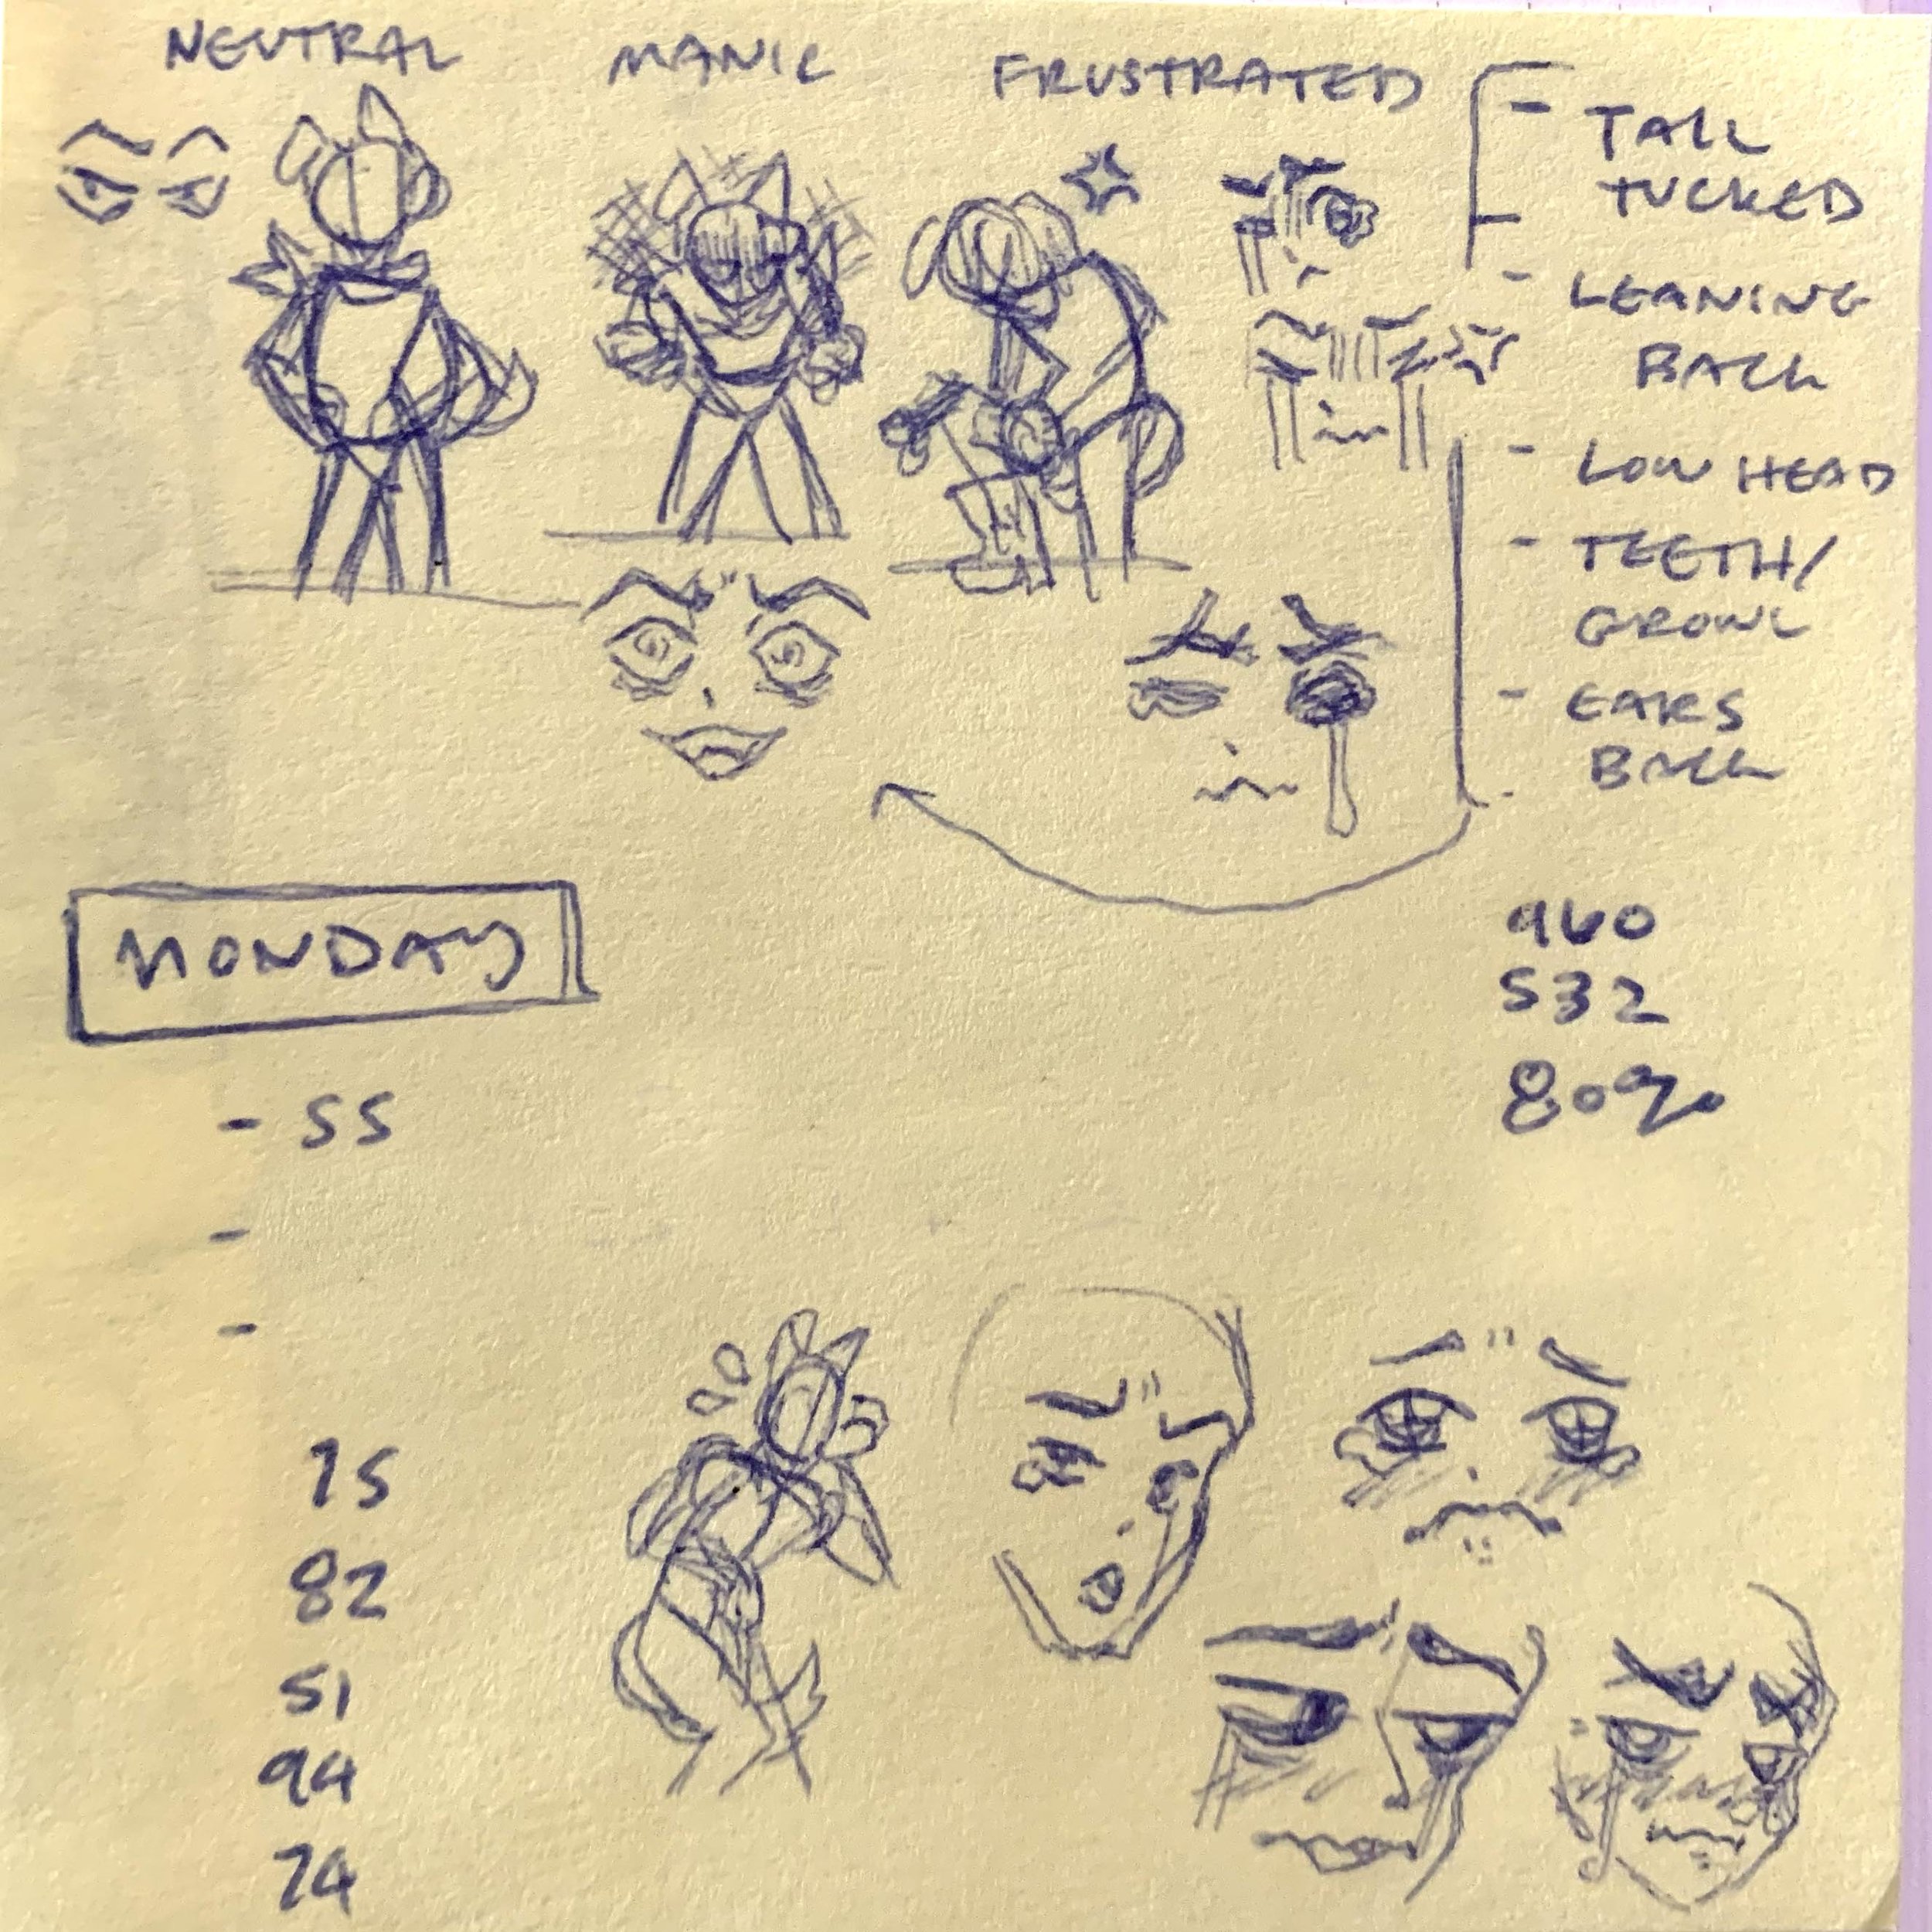 NEUTRAL
MANIC
FRUSTRATED
- TAIL
TUCKED
- LEANING
BACK
- LOW HEAD
- TEETH/
GROWL
- EARS
BACK
MONDAY
960
532
80%
- SS
-
-
75
82
51
94
74